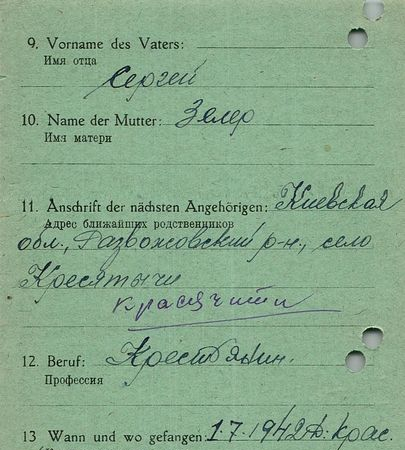 9. Vorname des Vaters:
Имя отца
Сергей
10. Name der Mutter: Зелер
Имя матери
11. Anschrift der nächsten Angehörigen: Киевская
Адрес ближайших родственников
обл., Розважовский р-н., село
Кресятычи
Красячити
12. Beruf: Крестьянин.
Профессия
13 Wann und wo gefangen: 1.7.1942